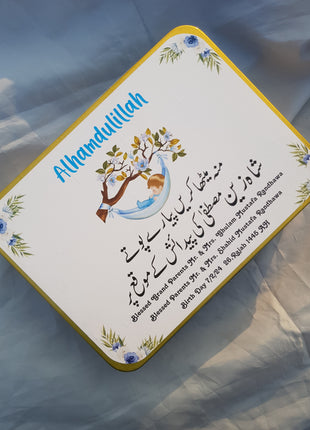 Alhamdulillah
منہ میٹھا کریں پیارے پوتے
شاہ زین مصطفٰی کی پیدائش کے موقع پر
Blessed Grand Parents Mr. & Mrs. Ghulam Mustafa Randhawa
Blessed Parents Mr. & Mrs. Shahid Mustafa Randhawa
Birth Day 7/2/24 26,Rajab 1445 AH